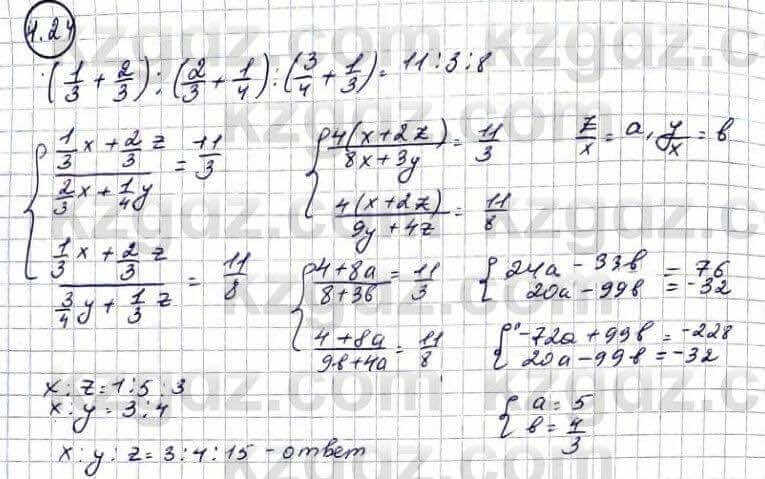 4.24
(1/3 + 2/3) : (2/3 + 1/4) : (3/4 + 1/3) = 11 : 3 : 8
{ (1/3 x + 2/3 z) / (2/3 x + 1/4 y) = 11/3
(1/3 x + 2/3 z) / (3/4 y + 1/3 z) = 11/8
{ 4(x+2z) / (8x+3y) = 11/3
4(x+2z) / (9y+4z) = 11/8
z/x = a, y/x = b
{ (4+8a) / (8+3b) = 11/3
(4+8a) / (9b+4a) = 11/8
{ 24a - 33b = 76
20a - 99b = -32
{ -72a + 99b = -228
20a - 99b = -32
{ a = 5
b = 4/3
x : z = 1 : 5 : 3
x : y = 3 : 4
x : y : z = 3 : 4 : 15 - ответ
kzgdz.com